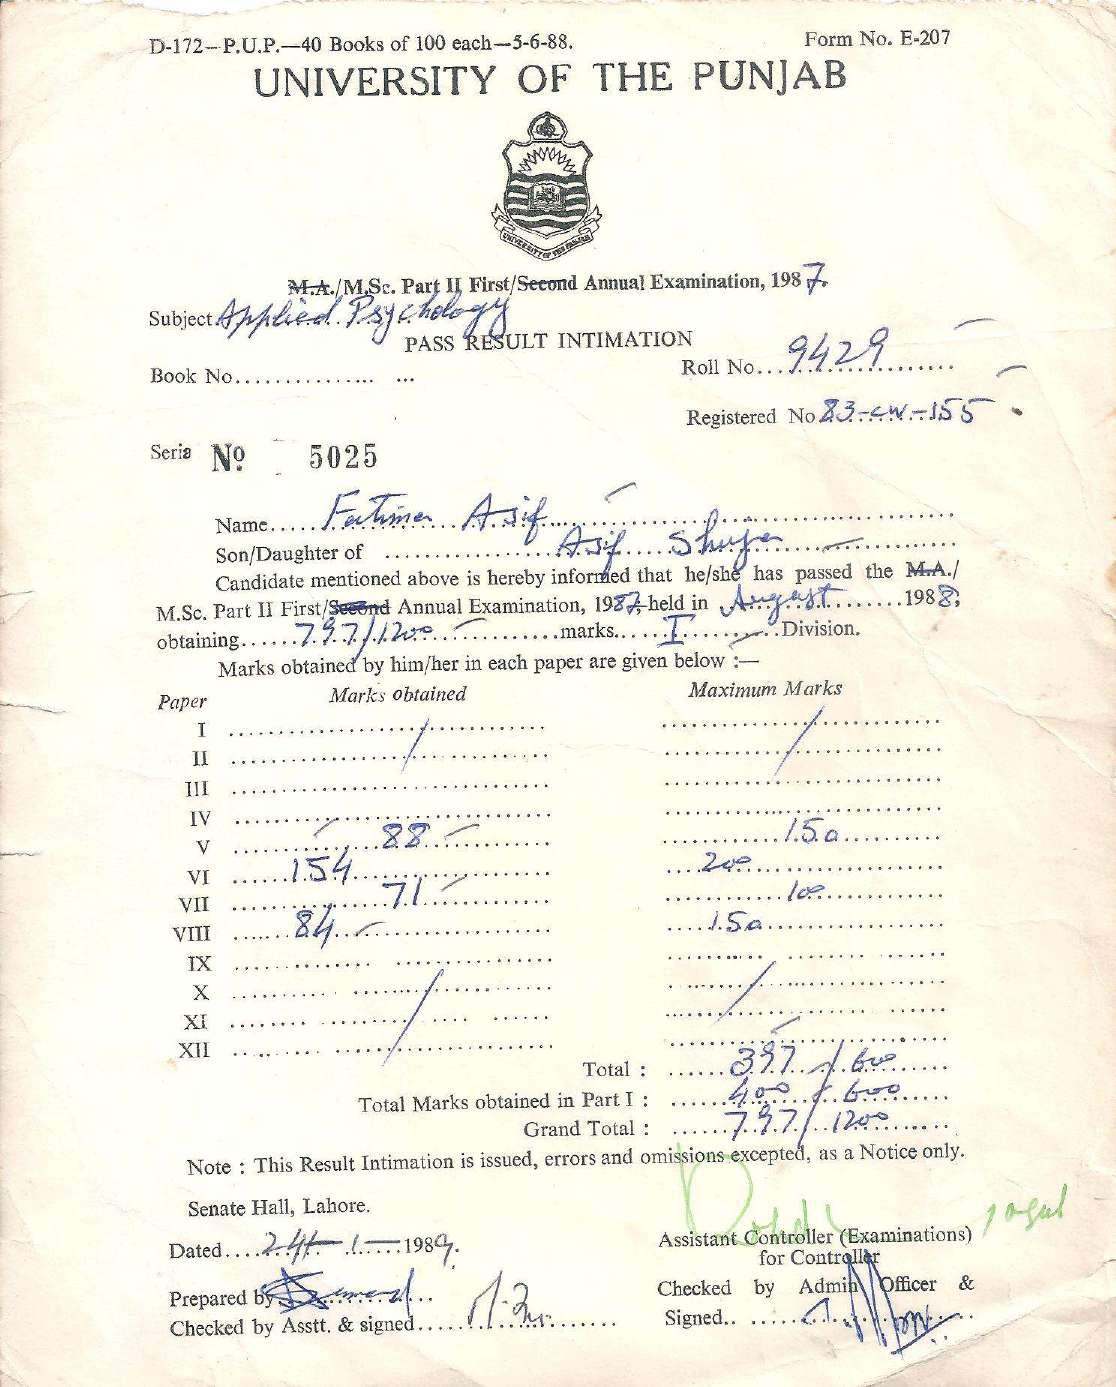 D-172—P.U.P.—40 Books of 100 each—3-6-88. Form No. E-207
UNIVERSITY OF THE PUNJAB
UNIVERSITY OF THE PANJAB
M.A./M.Sc. Part II First/Second Annual Examination, 1987.
Subject Applied Psychology
PASS RESULT INTIMATION
Book No............... ... Roll No...9429
Registered No 83-cw-155
Seria No 5025
Name.....Fatima Asif
Son/Daughter of Asif Shuja
Candidate mentioned above is hereby informed that he/she has passed the M.A./
M.Sc. Part II First/Second Annual Examination, 1987, held in August 1988,
obtaining 797/1200 marks I Division.
Marks obtained by him/her in each paper are given below :—
Paper Marks obtained Maximum Marks
I
II
III
IV
V 88 150
VI 154 200
VII 71 100
VIII 84 150
IX
X
XI
XII
Total : 397/600
Total Marks obtained in Part I : 400/600
Grand Total : 797/1200
Note : This Result Intimation is issued, errors and omissions excepted, as a Notice only.
Senate Hall, Lahore.
Dated 24-1-1989.
Assistant Controller (Examinations)
for Controller
Prepared by
Checked by Admin Officer &
Checked by Asstt. & signed
Signed